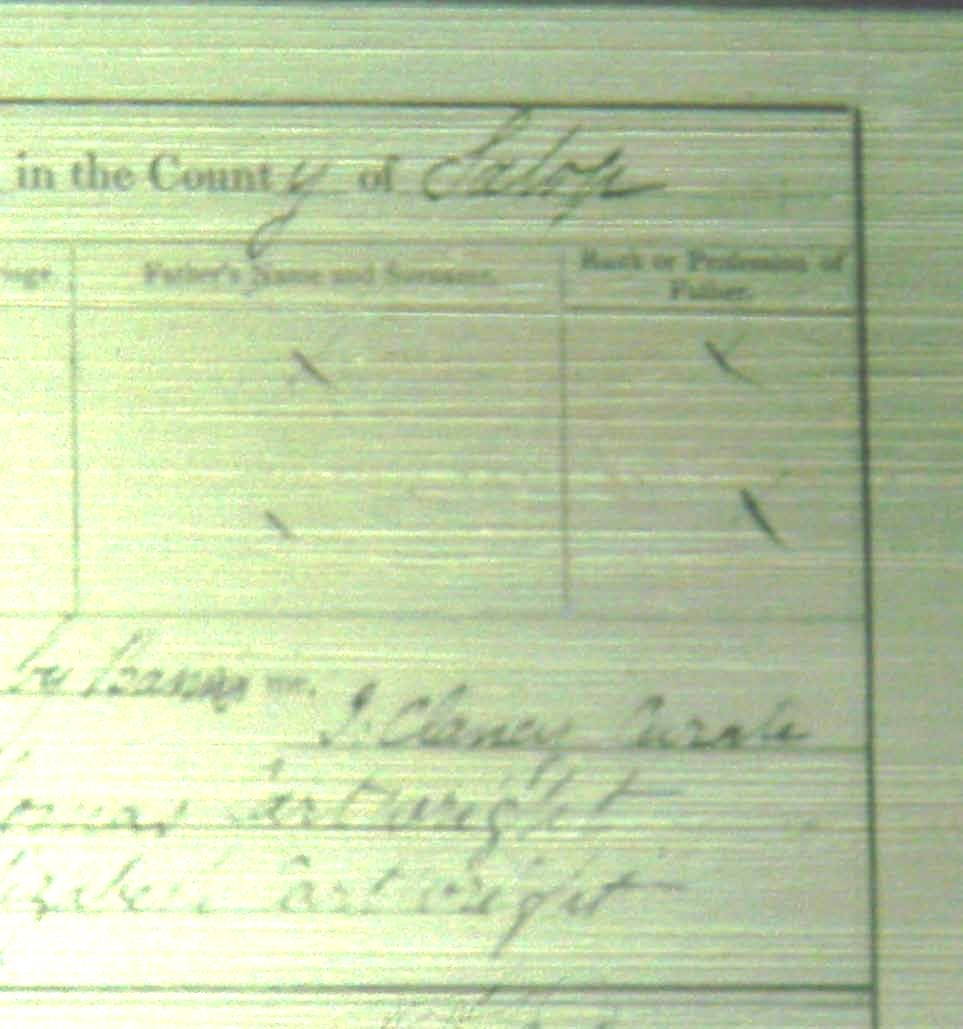 in the County of Salop
Father's Name and Surname.
Rank or Profession of
Father.
by Banns me,
J. Clancy Curate
Cartwright
Cartwright